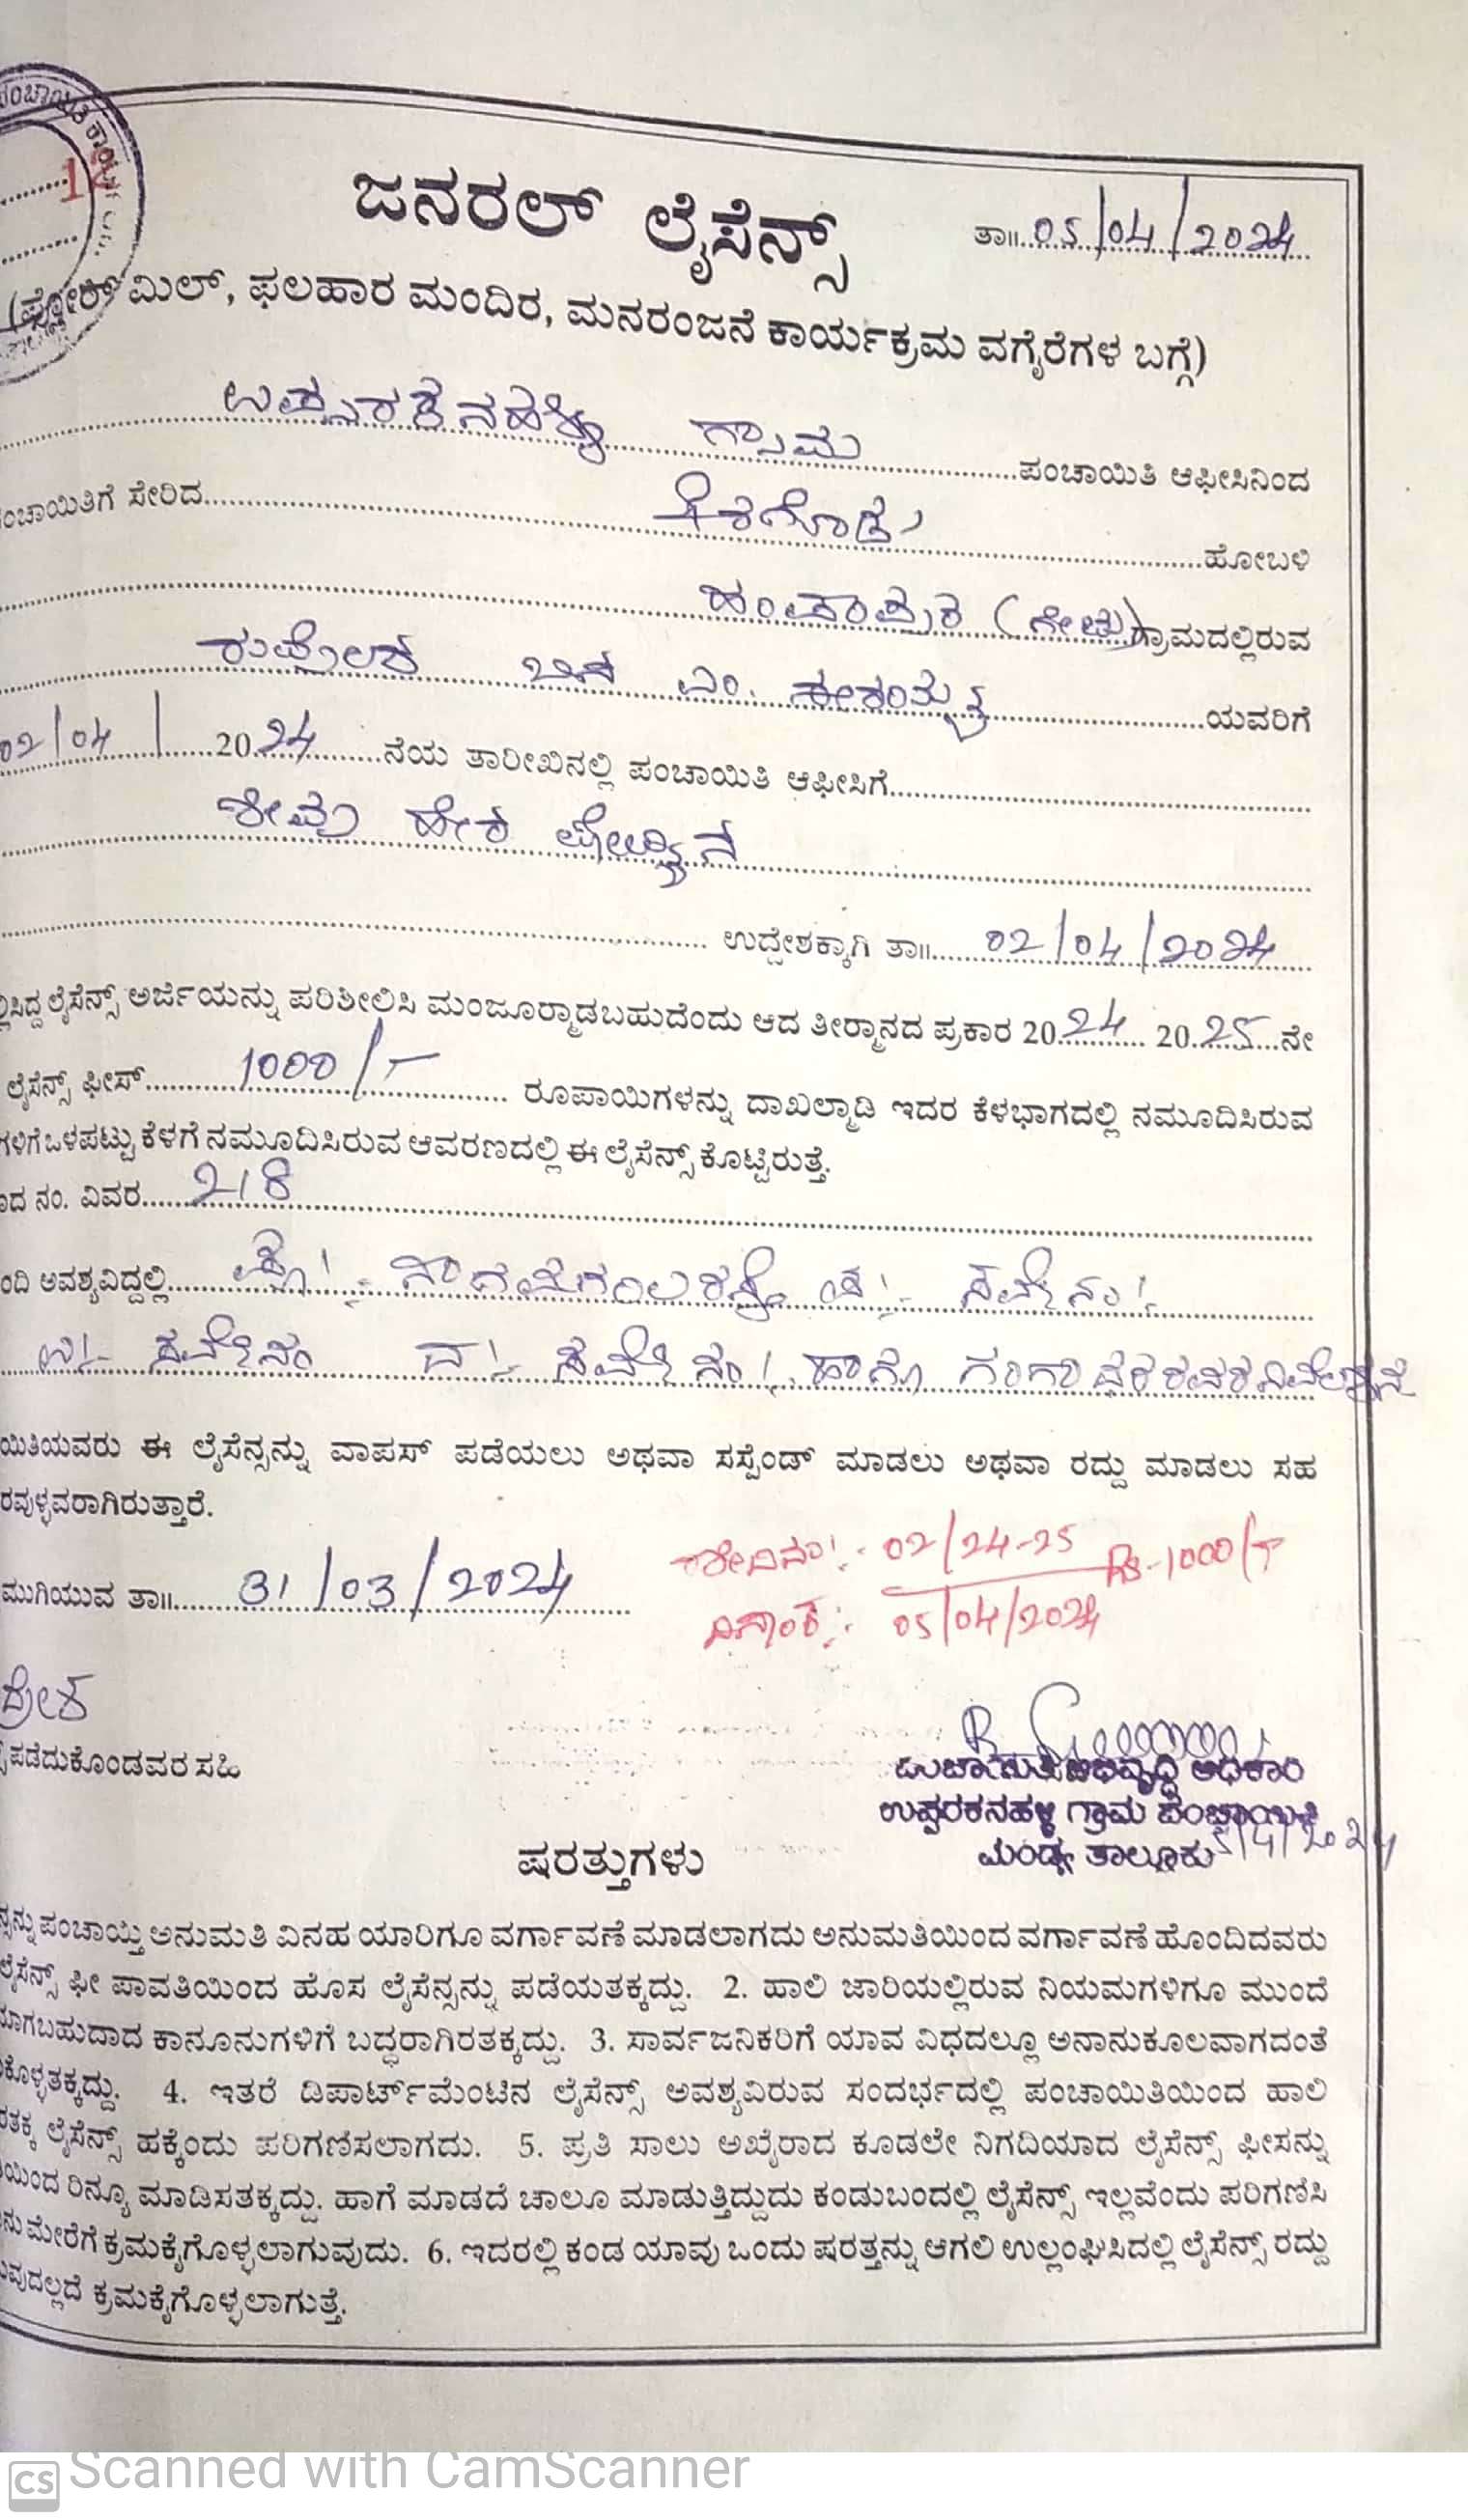 ಪಂಚಾಯಿತಿ ಕಾರ್ಯಾ
ಜನರಲ್ ಲೈಸೆನ್ಸ್
ತಾ॥ 05/04/2024
(ಫ್ಲೋರ್ ಮಿಲ್, ಫಲಹಾರ ಮಂದಿರ, ಮನರಂಜನೆ ಕಾರ್ಯಕ್ರಮ ವಗೈರೆಗಳ ಬಗ್ಗೆ)
ಉಪ್ಪರಕನಹಳ್ಳಿ ಗ್ರಾಮ ಪಂಚಾಯಿತಿ ಆಫೀಸಿನಿಂದ
ಂಚಾಯಿತಿಗೆ ಸೇರಿದ ಹೋಬಳಿ
(ಗೇಟು) ಗ್ರಾಮದಲ್ಲಿರುವ
ಬಿನ್ ಎಂ. ಯವರಿಗೆ
02/04/ 2024 ನೆಯ ತಾರೀಖಿನಲ್ಲಿ ಪಂಚಾಯಿತಿ ಆಫೀಸಿಗೆ
ಉದ್ದೇಶಕ್ಕಾಗಿ ತಾ॥ 02/04/2024
ಲ್ಲಿಸಿದ್ದ ಲೈಸೆನ್ಸ್ ಅರ್ಜಿಯನ್ನು ಪರಿಶೀಲಿಸಿ ಮಂಜೂರ್ಮಾಡಬಹುದೆಂದು ಆದ ತೀರ್ಮಾನದ ಪ್ರಕಾರ 2024 2025 ನೇ
ಲೈಸೆನ್ಸ್ ಫೀಸ್ 1000/- ರೂಪಾಯಿಗಳನ್ನು ದಾಖಲ್ಮಾಡಿ ಇದರ ಕೆಳಭಾಗದಲ್ಲಿ ನಮೂದಿಸಿರುವ
ಗಳಿಗೆ ಒಳಪಟ್ಟು ಕೆಳಗೆ ನಮೂದಿಸಿರುವ ಆವರಣದಲ್ಲಿ ಈ ಲೈಸೆನ್ಸ್ ಕೊಟ್ಟಿರುತ್ತೆ.
ದ ನಂ. ವಿವರ 218
ಂದಿ ಅವಶ್ಯವಿದ್ದಲ್ಲಿ
ಹಾಗೂ
ಯಿತಿಯವರು ಈ ಲೈಸೆನ್ಸನ್ನು ವಾಪಸ್ ಪಡೆಯಲು ಅಥವಾ ಸಸ್ಪೆಂಡ್ ಮಾಡಲು ಅಥವಾ ರದ್ದು ಮಾಡಲು ಸಹ
ರವುಳ್ಳವರಾಗಿರುತ್ತಾರೆ.
ಮುಗಿಯುವ ತಾ॥ 31/03/2024
02/24-25 Rs-1000/-
ದಿನಾಂಕ:- 05/04/2024
ಪಡೆದುಕೊಂಡವರ ಸಹಿ
ಪಂಚಾಯಿತಿ ಅಭಿವೃದ್ಧಿ ಅಧಿಕಾರಿ
ಉಪ್ಪರಕನಹಳ್ಳಿ ಗ್ರಾಮ ಪಂಚಾಯಿತಿ
ಮಂಡ್ಯ ತಾಲ್ಲೂಕು 5/4/2024
ಷರತ್ತುಗಳು
ನ್ಸನ್ನು ಪಂಚಾಯ್ತಿ ಅನುಮತಿ ವಿನಹ ಯಾರಿಗೂ ವರ್ಗಾವಣೆ ಮಾಡಲಾಗದು ಅನುಮತಿಯಿಂದ ವರ್ಗಾವಣೆ ಹೊಂದಿದವರು
ಲೈಸೆನ್ಸ್ ಫೀ ಪಾವತಿಯಿಂದ ಹೊಸ ಲೈಸೆನ್ಸನ್ನು ಪಡೆಯತಕ್ಕದ್ದು. 2. ಹಾಲಿ ಜಾರಿಯಲ್ಲಿರುವ ನಿಯಮಗಳಿಗೂ ಮುಂದೆ
ಯಾಗಬಹುದಾದ ಕಾನೂನುಗಳಿಗೆ ಬದ್ಧರಾಗಿರತಕ್ಕದ್ದು. 3. ಸಾರ್ವಜನಿಕರಿಗೆ ಯಾವ ವಿಧದಲ್ಲೂ ಅನಾನುಕೂಲವಾಗದಂತೆ
ಕೊಳ್ಳತಕ್ಕದ್ದು. 4. ಇತರೆ ಡಿಪಾರ್ಟ್‌ಮೆಂಟಿನ ಲೈಸೆನ್ಸ್ ಅವಶ್ಯವಿರುವ ಸಂದರ್ಭದಲ್ಲಿ ಪಂಚಾಯಿತಿಯಿಂದ ಹಾಲಿ
ರತಕ್ಕ ಲೈಸೆನ್ಸ್ ಹಕ್ಕೆಂದು ಪರಿಗಣಿಸಲಾಗದು. 5. ಪ್ರತಿ ಸಾಲು ಅಖೈರಾದ ಕೂಡಲೇ ನಿಗದಿಯಾದ ಲೈಸೆನ್ಸ್ ಫೀಸನ್ನು
ಯಿಂದ ರಿನ್ಯೂ ಮಾಡಿಸತಕ್ಕದ್ದು. ಹಾಗೆ ಮಾಡದೆ ಚಾಲೂ ಮಾಡುತ್ತಿದ್ದುದು ಕಂಡುಬಂದಲ್ಲಿ ಲೈಸೆನ್ಸ್ ಇಲ್ಲವೆಂದು ಪರಿಗಣಿಸಿ
ನು ಮೇರೆಗೆ ಕ್ರಮಕೈಗೊಳ್ಳಲಾಗುವುದು. 6. ಇದರಲ್ಲಿ ಕಂಡ ಯಾವು ಒಂದು ಷರತ್ತನ್ನು ಆಗಲಿ ಉಲ್ಲಂಘಿಸಿದಲ್ಲಿ ಲೈಸೆನ್ಸ್ ರದ್ದು
ವುದಲ್ಲದೆ ಕ್ರಮಕೈಗೊಳ್ಳಲಾಗುತ್ತೆ.
CS Scanned with CamScanner